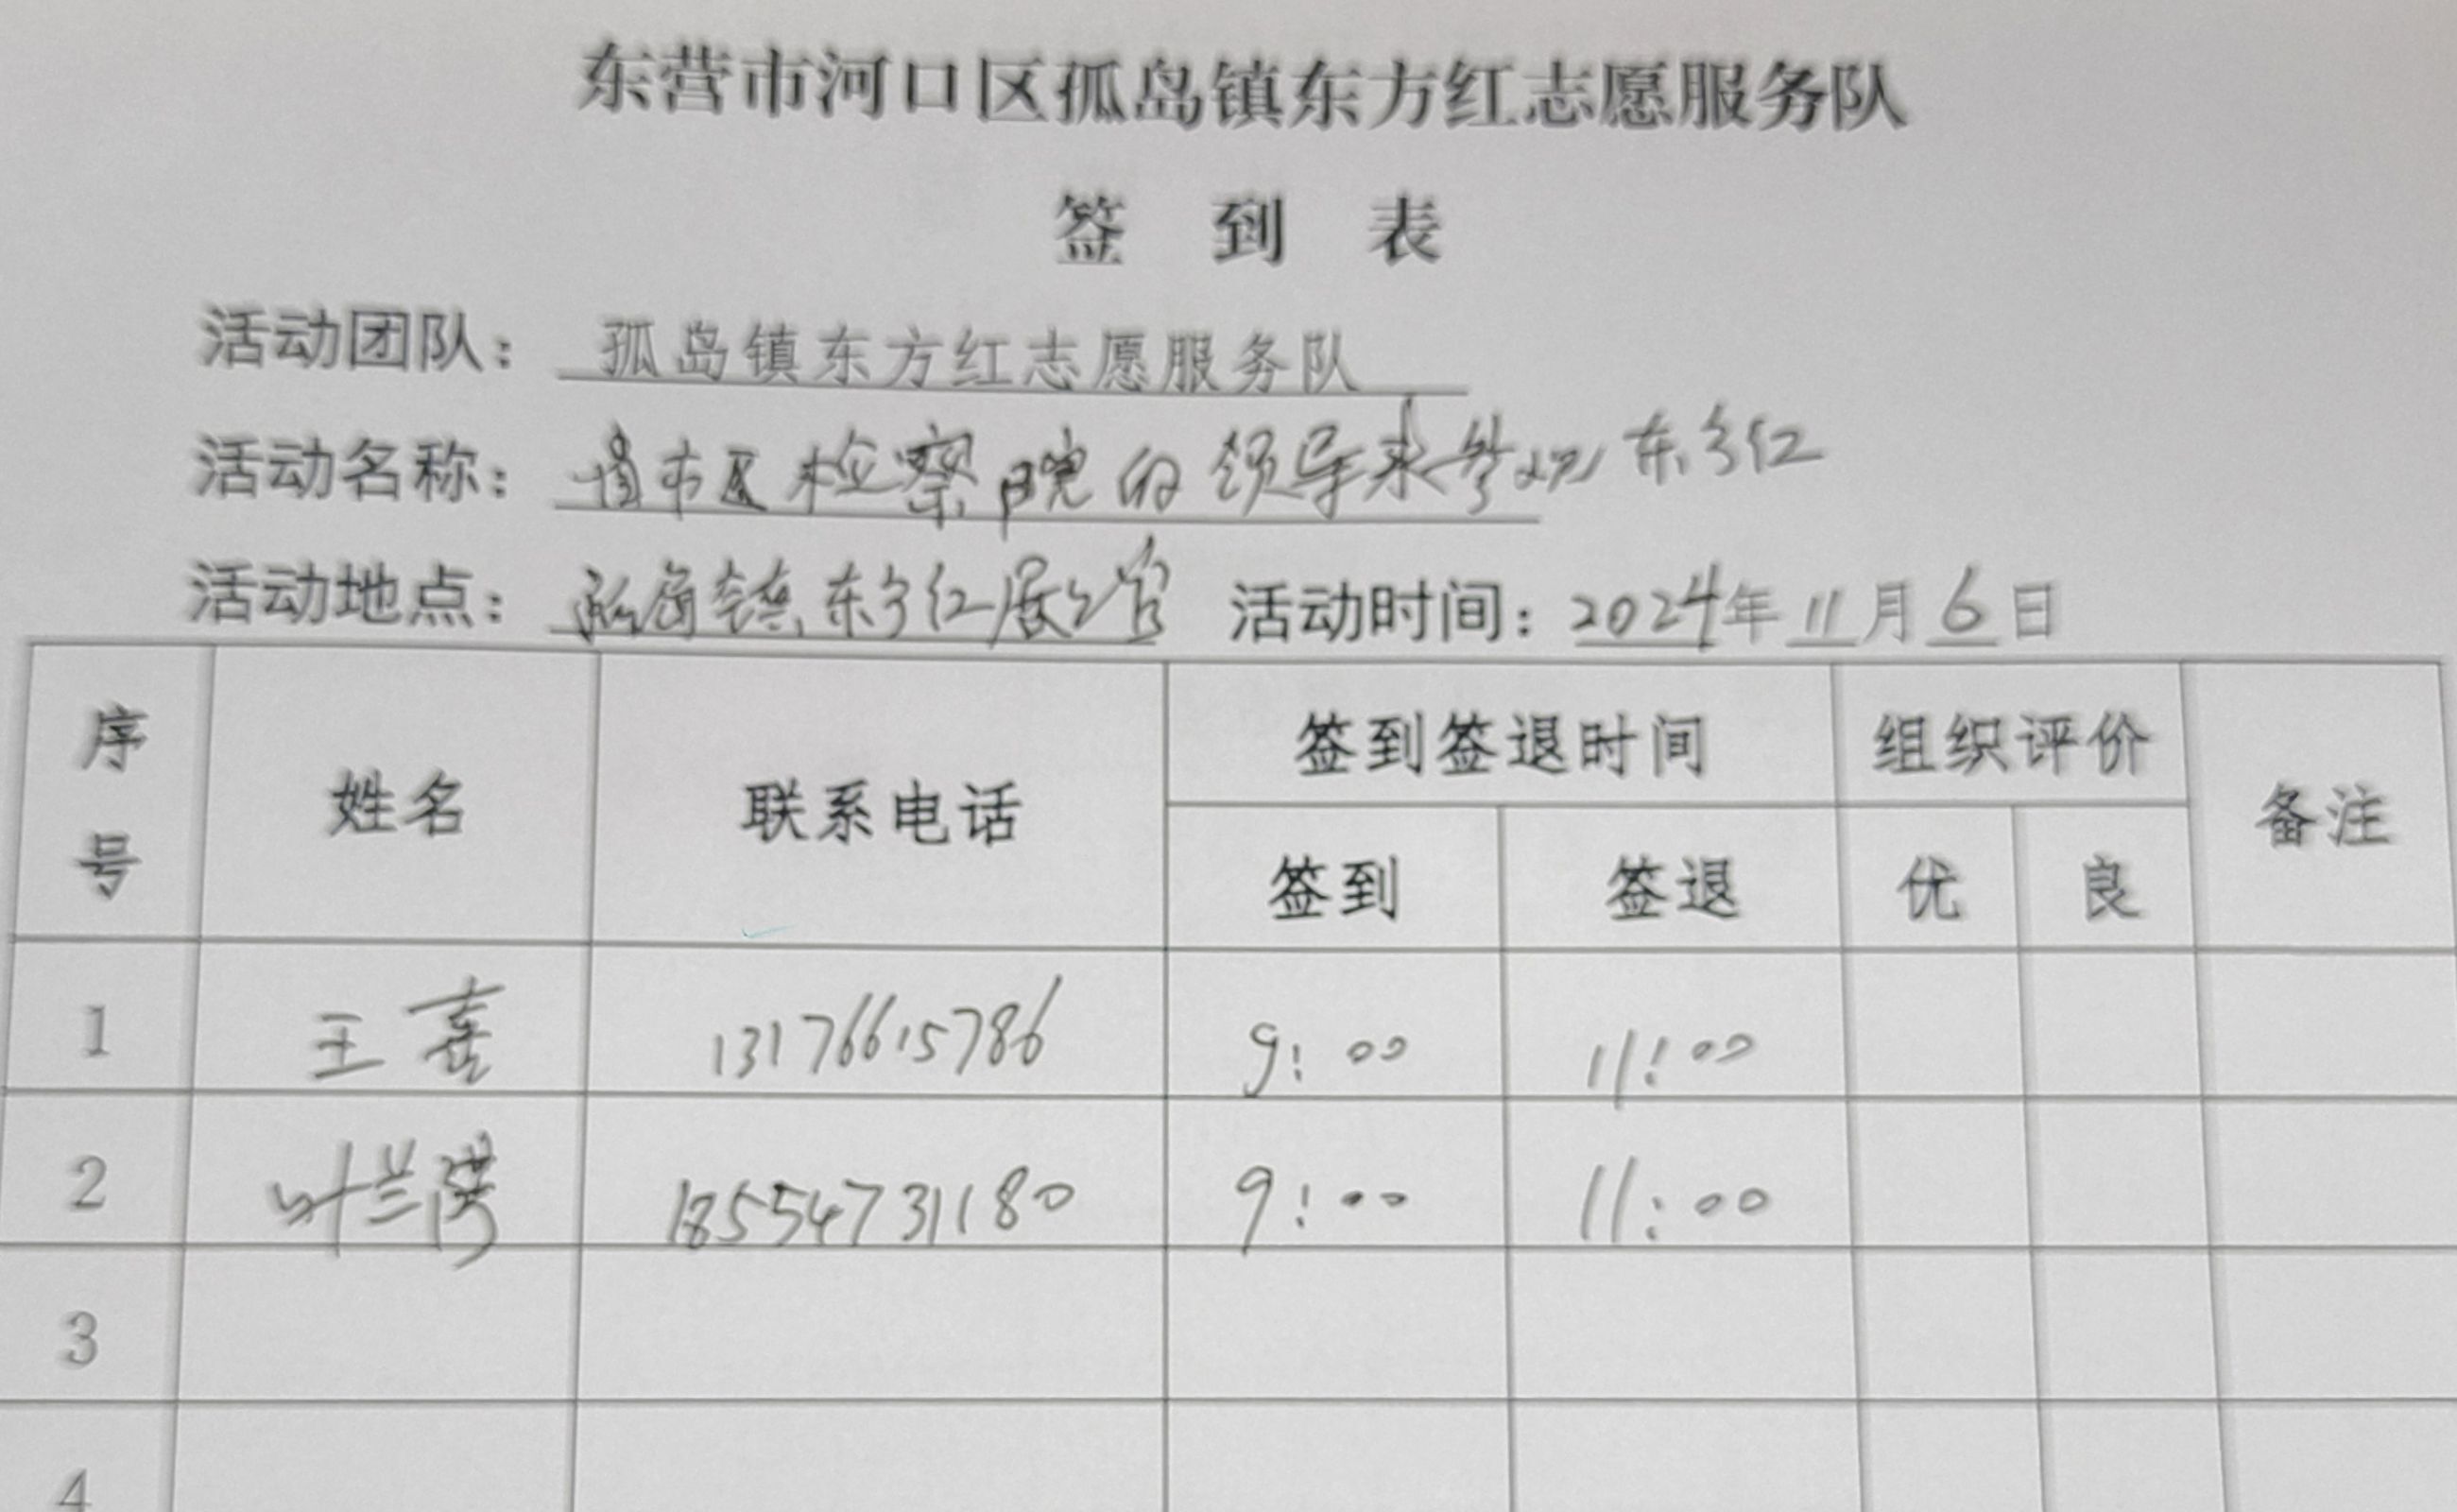 东营市河口区孤岛镇东方红志愿服务队
签 到 表
活动团队： 孤岛镇东方红志愿服务队
活动名称： 省市区检察院的领导来参观东方红
活动地点： 孤岛镇东方红展馆 活动时间：2024年11月6日
序号 姓名 联系电话 签到签退时间 组织评价 备注
签到 签退 优 良
1 王喜 13176615786 9:00 11:00
2 叶兰 18554731180 9:00 11:00
3
4